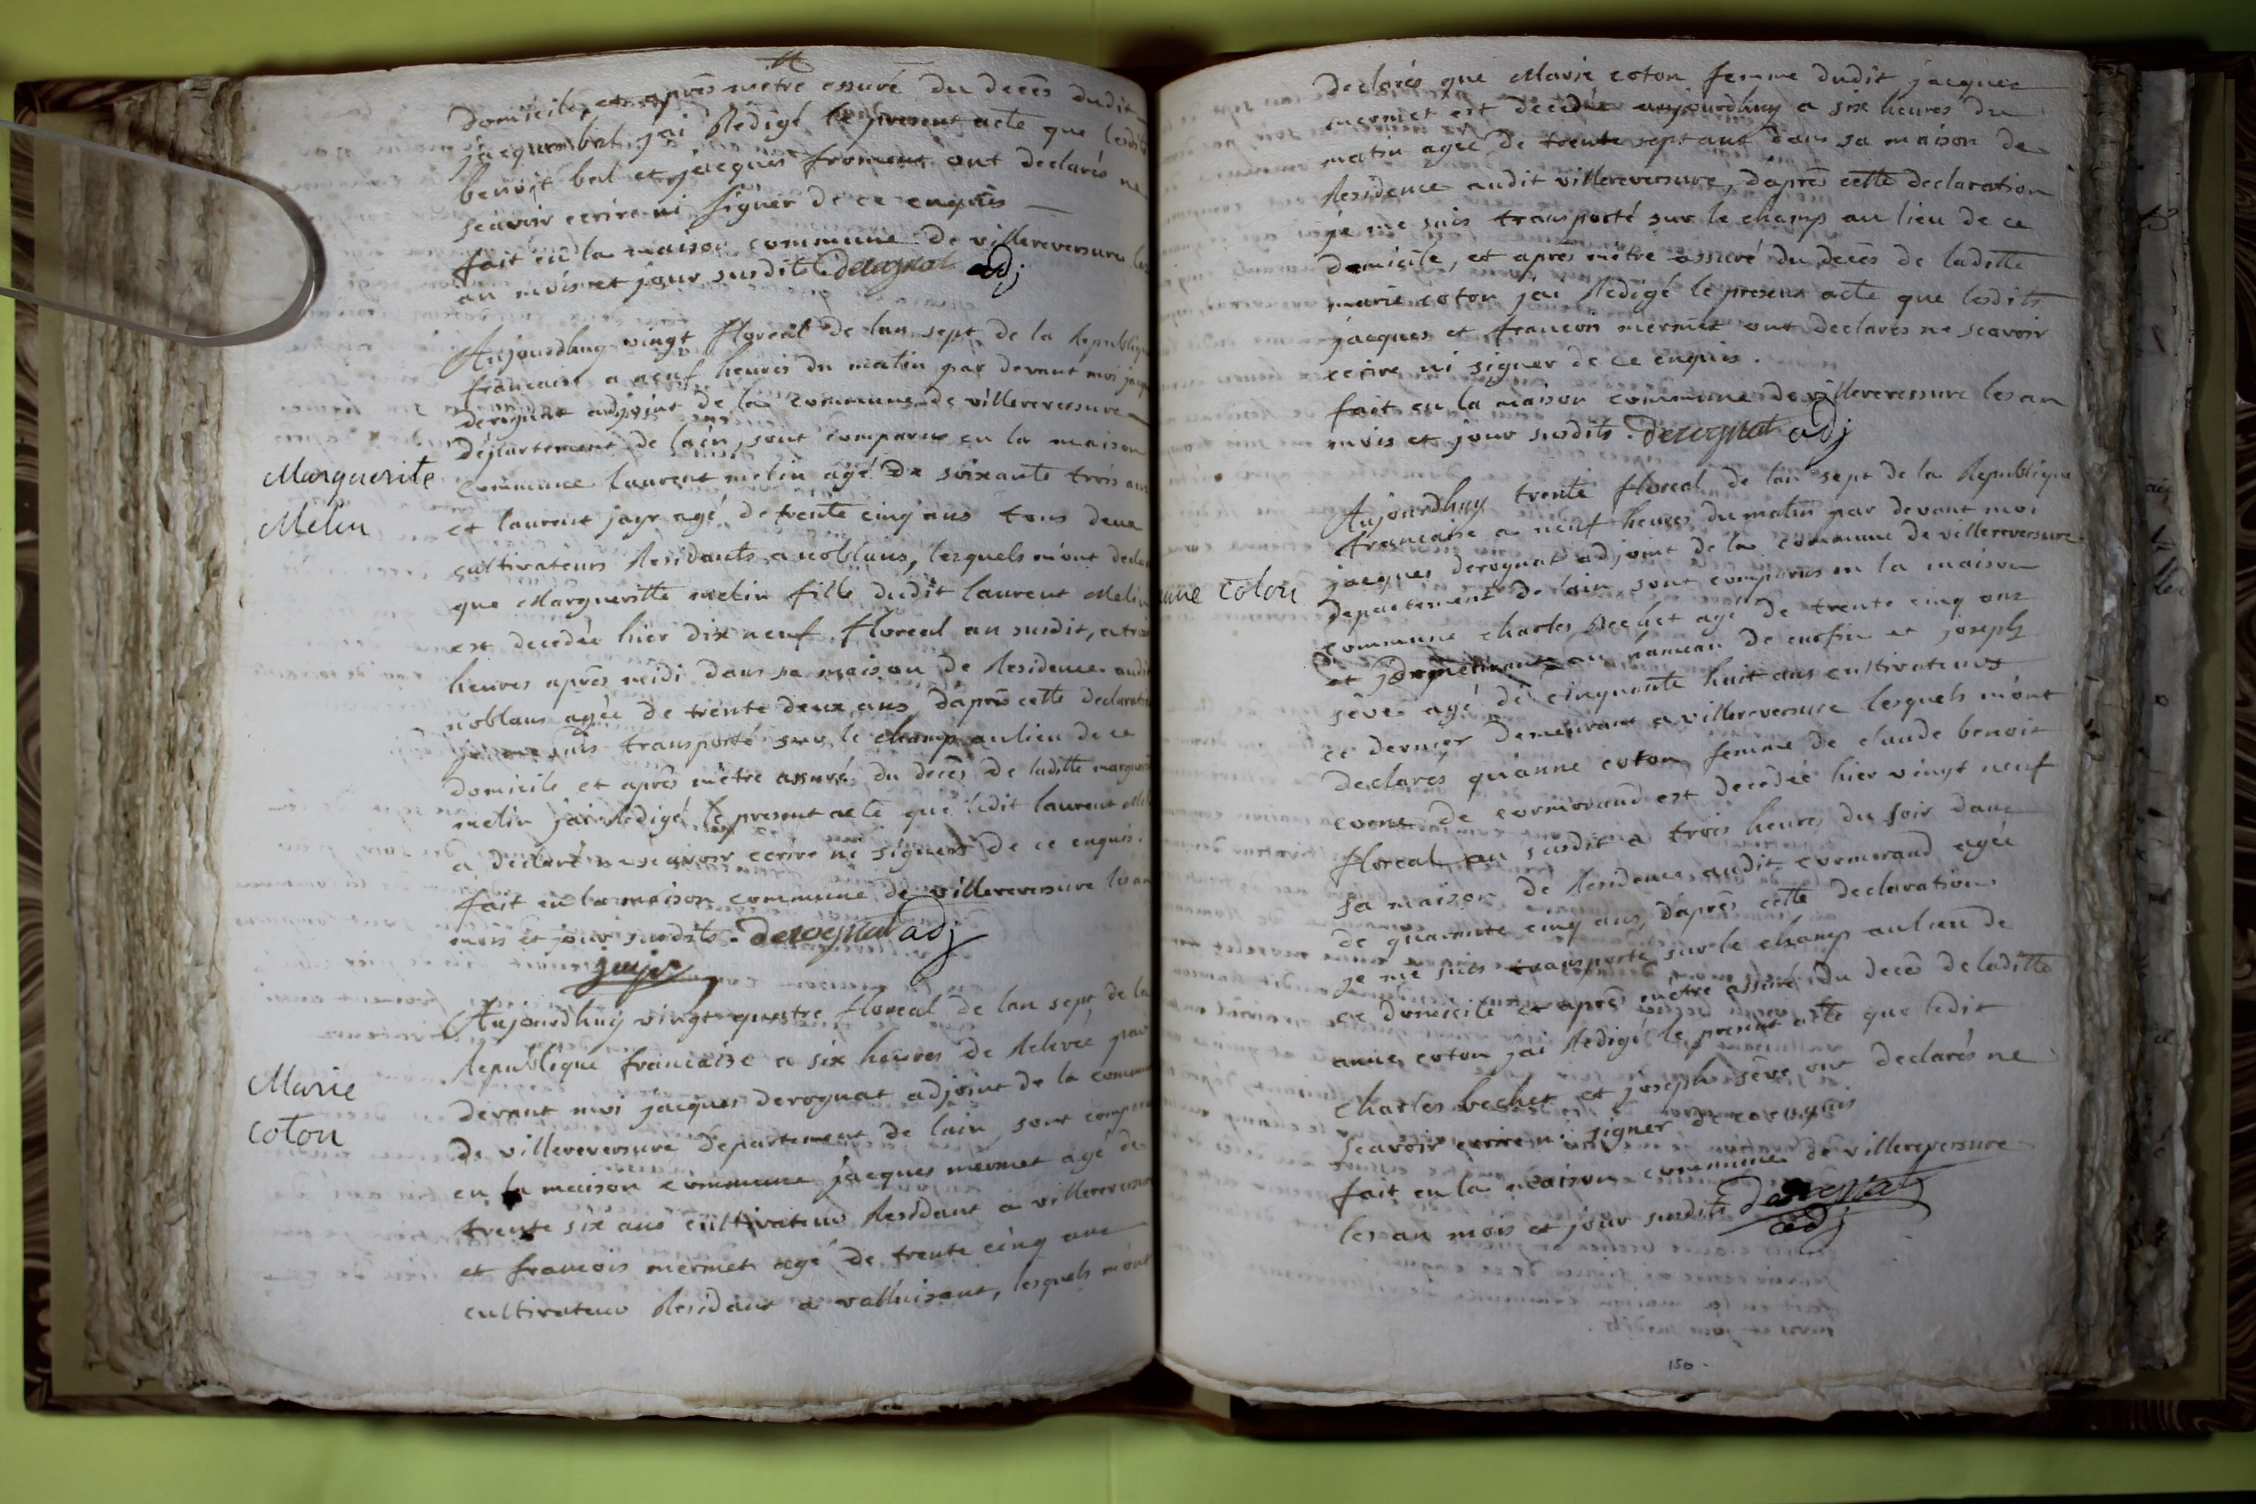 domicile, et après mêtre assuré du decês dudit
jacques bal jai Redigé le present acte que lesdits
benoit bal et jacques froment ont declarés ne
scavoir ecrire ni signer de ce enquis
fait en la maison commune de villereversure les
an mois et jour susdits derognat adj
Aujourdhuy vingt floreal de lan sept de la Republique
francaise a neuf heures du matin par devant moi jacques
derognat adjoint de la commune de villereversure
Département de lain, sont comparus en la maison
Marguerite
Melin
commune laurent melin agé de soixante trois ans
et laurent jayr agé de trente cinq ans tous deux
cultivateurs Residants a noblans, lesquels mont declarés
que Margueritte melin fille dudit laurent Melin
est decedée hier dix neuf floreal an susdit, a trois
heures après midi dans sa maison de Residence audit
noblans agée de trente deux ans, daprês cette declaration
je me suis transporté sur le champ au lieu de ce
domicile et après mêtre assuré du decês de laditte marguerite
melin jai Redigé le present acte que ledit laurent Melin
a declaré ne scavoir ecrire ni signer de ce enquis.
fait en la maison commune de villereversure les an
mois et jour susdits. derognat adj
Aujourdhuy vingt quatre floreal de lan sept de la
Republique francaise a six heures de Relevée par
Marie
coton
devant moi jacques derognat adjoint de la commune
de villereversure Departement de lain, sont comparus
en la maison commune jacques mermet agé de
trente six ans cultivateur Residant a villereversure
et francois mermet agé de trente cinq ans
cultivateur Residant a valluisant, lesquels mont
declarés que Marie coton femme dudit jacques
mermet est decedée aujourdhuy a six heures du
matin agée de trente sept ans dans sa maison de
Residence audit villereversure, daprês cette declaration
je me suis transporté sur le champ au lieu de ce
domicile, et après mêtre assuré du decês de laditte
marie coton jai Redigé le present acte que lesdits
jacques et francois mermet ont declarés ne scavoir
ecrire ni signer de ce enquis.
fait en la maison commune de villereversure les an
mois et jour susdits. derognat adj
Aujourdhuy trente floreal de lan sept de la Republique
francaise a neuf heures du matin par devant moi
jacques derognat adjoint de la commune de villereversure
anne coton
departement de lain sont comparus en la maison
commune charles bechet agé de trente cinq ans
et au hameau de et joseph
sève agé de cinquante huit ans cultivateurs
ce dernier demeurant a villereversure lesquels mont
declarés quanne coton femme de claude benoit
de cormorand est decedée hier vingt neuf
floreal an susdit a trois heures du soir dans
sa maison de Residence audit cormorand agée
de quarante cinq ans, daprès cette declaration
je me suis transporté sur le champ au lieu de
ce domicile et après mêtre assuré du decês de laditte
anne coton jai Redigé le present acte que ledit
charles bechet et joseph sève ont declarés ne
scavoir ecrire ni signer de ce enquis
fait en la maison commune de villereversure
les an mois et jour susdits derognat
adj
150